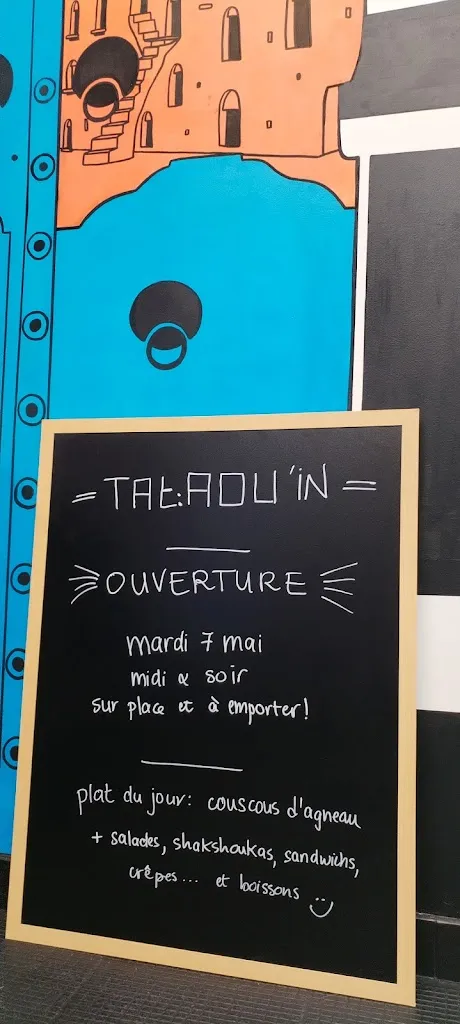 = TAt:AOU'iN =
OUVERTURE
mardi 7 mai
midi & soir
sur place et à emporter!
plat du jour: couscous d'agneau
+ salades, shakshoukas, sandwichs,
crêpes... et boissons